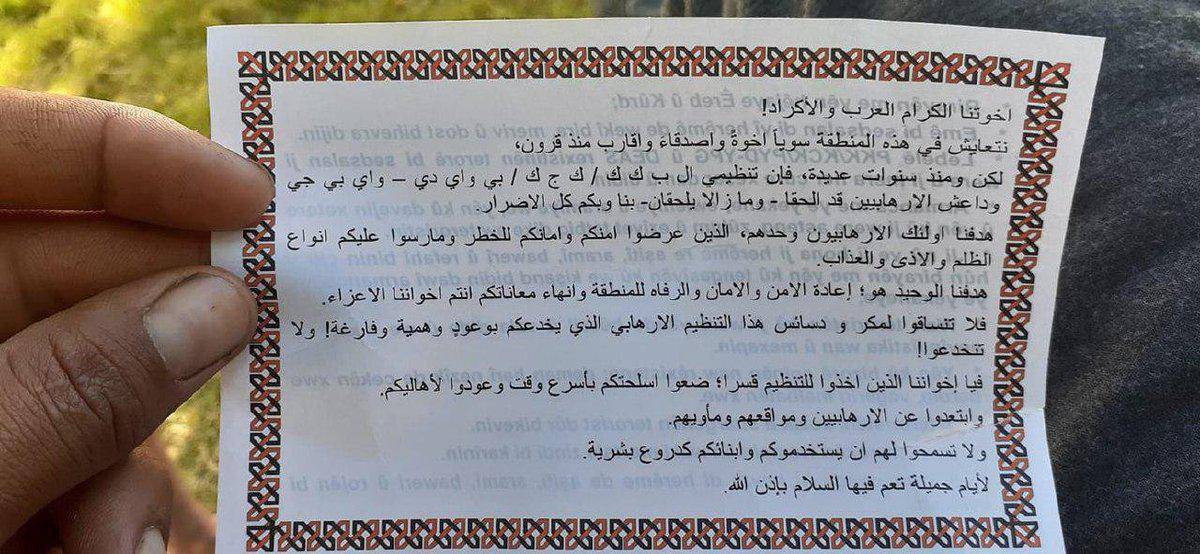 اخوتنا الكرام العرب والأكراد!
نتعايش في هذه المنطقة سوياً اخوةً واصدقاءً واقارب منذ قرون،
لكن ومنذ سنوات عديدة، فإن تنظيمي ال ب ك ك / ك ج ك / بي واي دي – واي بي جي
وداعش الارهابيين قد الحقا - وما زالا يلحقان- بنا وبكم كل الاضرار.
هدفنا اولئك الارهابيون وحدهم، الذين عرضوا امنكم وامانكم للخطر ومارسوا عليكم انواع
الظلم والاذى والعذاب.
هدفنا الوحيد هو؛ إعادة الامن والامان والرفاه للمنطقة وانهاء معاناتكم انتم اخواننا الاعزاء.
فلا تنساقوا لمكر و دسائس هذا التنظيم الارهابي الذي يخدعكم بوعودٍ وهمية وفارغة! ولا
تنخدعوا!
فيا إخواننا الذين اخذوا للتنظيم قسرا؛ ضعوا اسلحتكم بأسرع وقت وعودوا لأهاليكم.
وابتعدوا عن الارهابيين ومواقعهم ومأويهم.
ولا تسمحوا لهم ان يستخدموكم وابنائكم كدروع بشرية.
لأيام جميلة تعم فيها السلام بإذن الله.